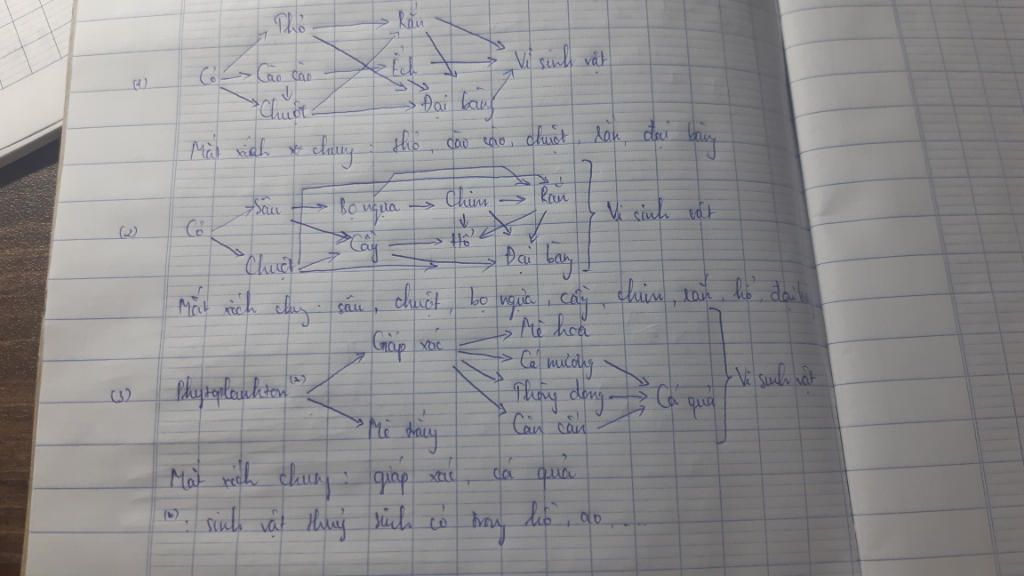 Thỏ Rắn
(1) Cỏ Cào cào Ếch Vi sinh vật
Chuột Đại bàng
Mắt xích chung: thỏ, cào cào, chuột, rắn, đại bàng
Sâu Bọ ngựa Chim Rắn
(2) Cỏ Cầy Hổ Vi sinh vật
Chuột Đại bàng
Mắt xích chug: sâu, chuột, bọ ngựa, cầy, chim, rắn, hổ, đại
Giáp xác Mè hoa
Cá mương
(3) Phytoplankton Thòng dong Cá quả Vi sinh vật
Mè trắng Cân cấn
Mắt xích chung: giáp xác, cá quả
sinh vật thuỷ sinh có trong hồ, ao, ....